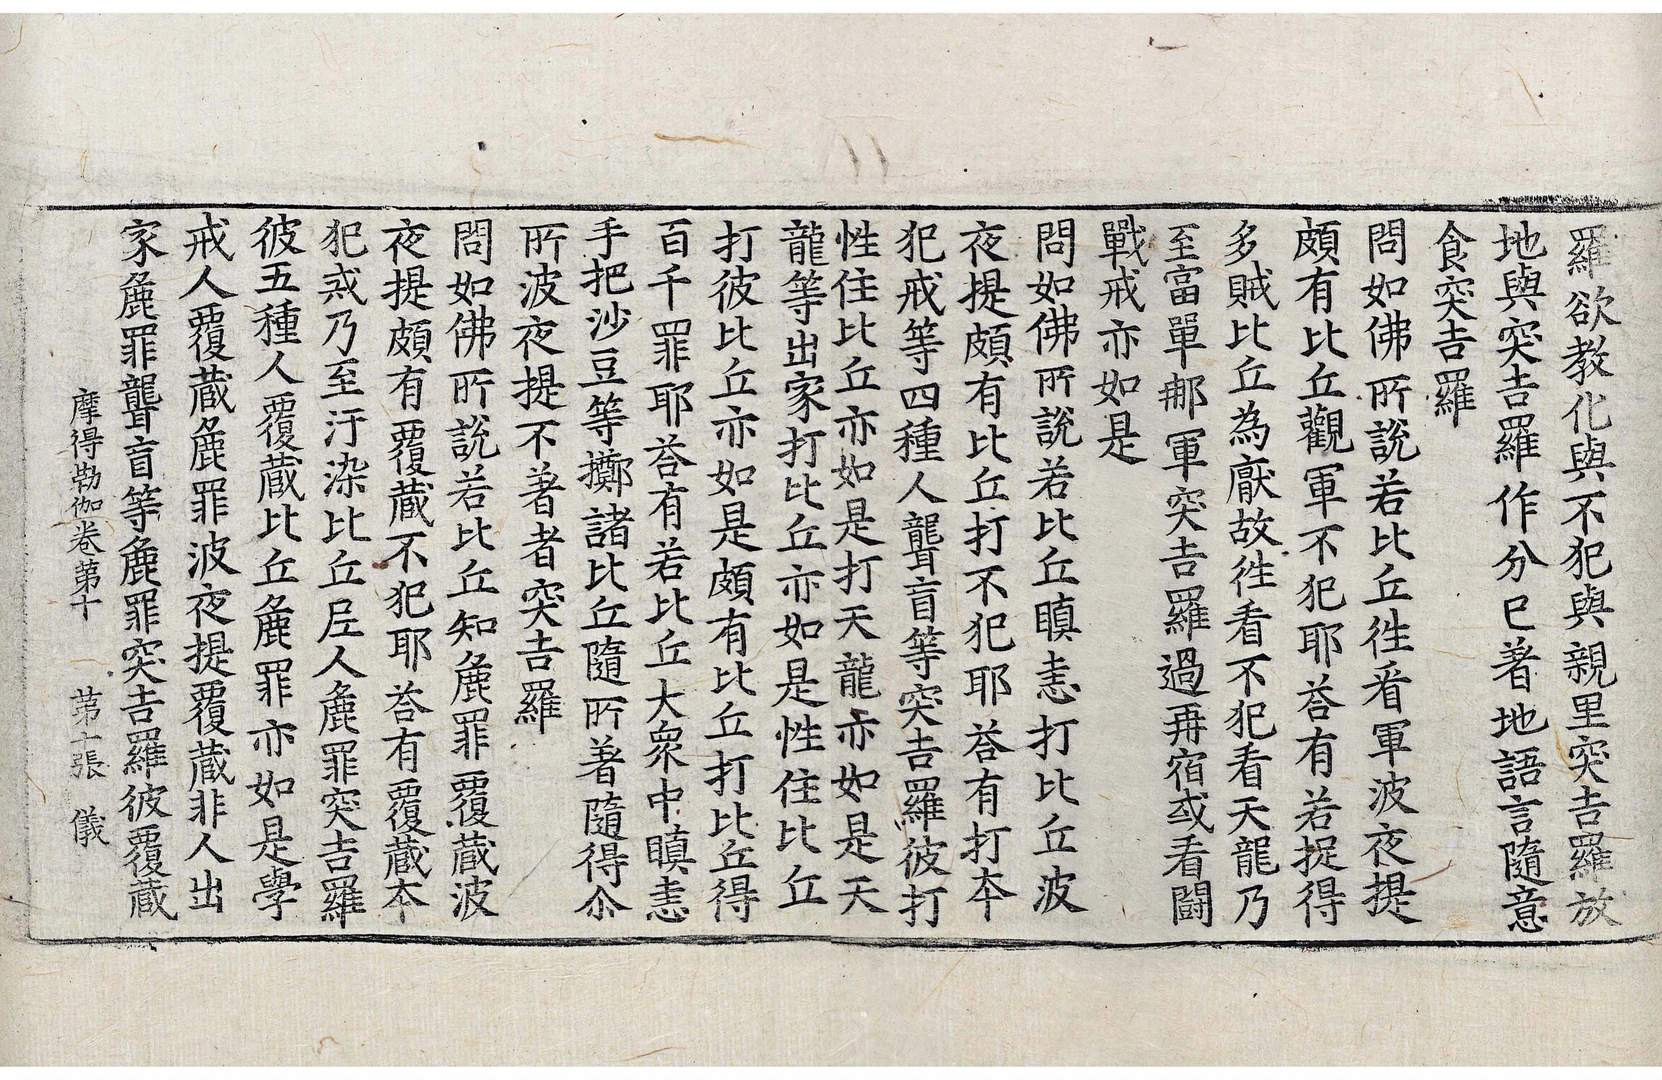 羅欲教化與不犯與親里突吉羅放
地與突吉羅作分已著地語言隨意
食突吉羅
問如佛所說若比丘往看軍波夜提
頗有比丘觀軍不犯耶荅有若捉得
多賊比丘為猒故往看不犯看天龍乃
至富單那軍突吉羅過再宿或看鬪
戰戒亦如是
問如佛所說若比丘瞋恚打比丘波
夜提頗有比丘打不犯耶荅有打夲
犯戒等四種人聾盲等突吉羅彼打
性住比丘亦如是打天龍亦如是天
龍等出家打比丘亦如是性住比丘
打彼比丘亦如是頗有比丘打比丘得
百千罪耶荅有若比丘大衆中瞋恚
手把沙豆等擲諸比丘隨所著隨得尒
所波夜提不著者突吉羅
問如佛所說若比丘知麁罪覆蔵波
夜提頗有覆蔵不犯耶荅有覆蔵夲
犯戒乃至汙染比丘尼人麁罪突吉羅
彼五種人覆蔵比丘麁罪亦如是學
戒人覆蔵麁罪波夜提覆蔵非人出
家麁罪聾盲等麁罪突吉羅彼覆蔵
摩得勒伽卷苐十 苐十張 儀